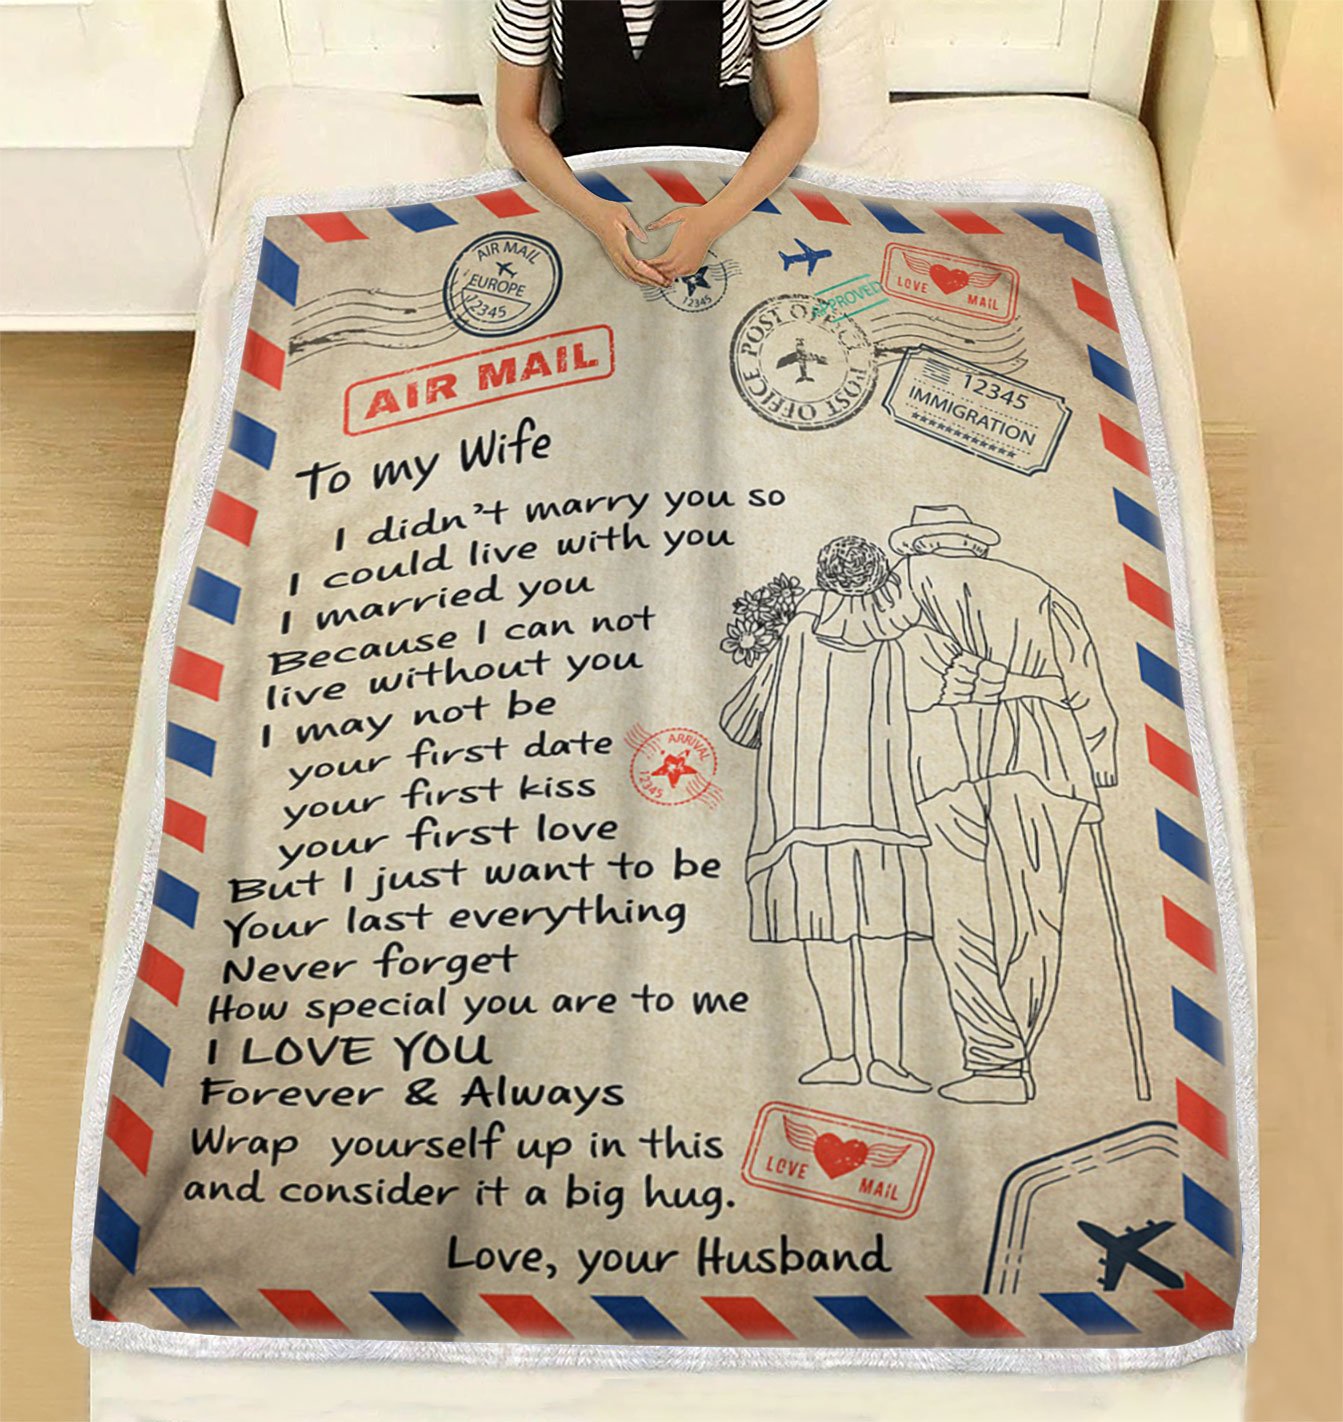 AIR MAIL
EUROPE
12345
12345
APPROVED
LOVE MAIL
POST OFFICE POST OFFICE
12345
IMMIGRATION
AIR MAIL
To my Wife
I didn't marry you so
I could live with you
I married you
Because I can not
live without you
I may not be
your first date
your first kiss
your first love
But I just want to be
Your last everything
Never forget
How special you are to me
I LOVE YOU
Forever & Always
Wrap yourself up in this
and consider it a big hug.
Love, your Husband
ARRIVAL
12345
LOVE MAIL